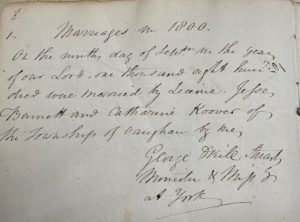 1.
Marriages in 1800.
On the ninth day of Septr in the year
of our Lord, one thousand eight hun
dred were married by License Jesse
Bennett and Catharine Koover of
the Township of Vaughan by me,
George
Minister &
at York